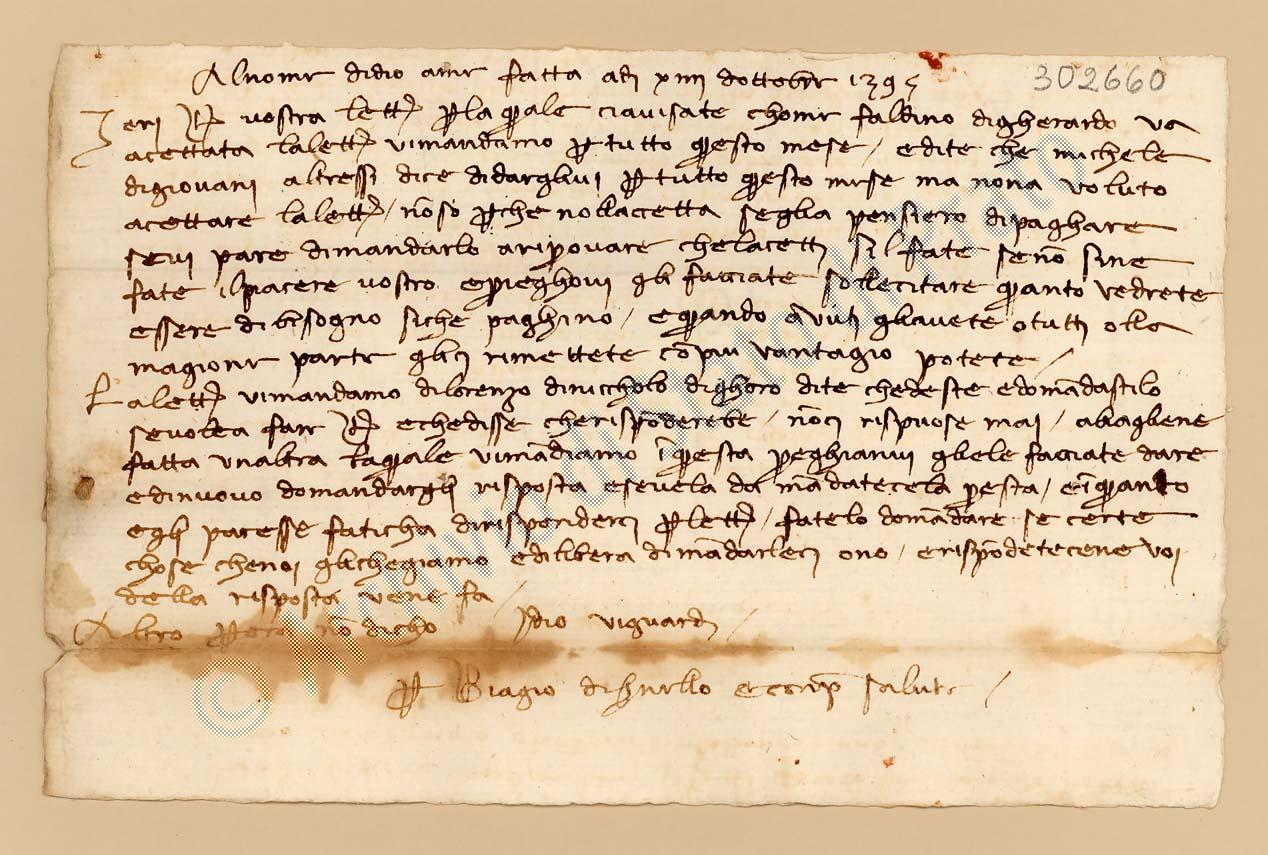 Al nome di dio ame fatta adi xiiii dottobre 1395
302660
Ieri R vostra lettr per la quale ci avisate chome faldino di gherardo va
acettata la lettr vi mandamo per tutto questo mese / e dite che michele
di giovani altressi dice di dargli vi per tutto questo mese ma nona voluto
acettare la lettr / nō so perche nolla cetta segli a pensiero di paghare
se vi pare di mandarlo a ripovare che lacetti si l fate se nō sine
fate il piacere vostro e prieghovi gli facciate sollecitare quanto vedrete
essere di bisogno siche paghino / e quando avuti gli avete o tutti o lla
magiore parte gli ci rimettete cō piu vantagio potete /
La lettr vi mandamo di lorenzo di niccholo di ghoro dite che deste e domādastilo
se volea fare R e che disse che rispōderebe / nō ci rispuose mai / abiagliene
fatta unaltra la quale vi mādiamo i questa preghianvi gliele facciate dare
e di nuovo domandargli risposta e se ve la da mādatecela presta / e i quanto
egli paresse faticha di risponderci per lettr / fatelo domādare se certe
chose che noi gli chegiamo e dilibera di mādarleci o no / e rispōdetecene voi
della risposta vene fa /
Altro per ora nō dicho Idio vi guardi /
per Biagio di e conp salute /